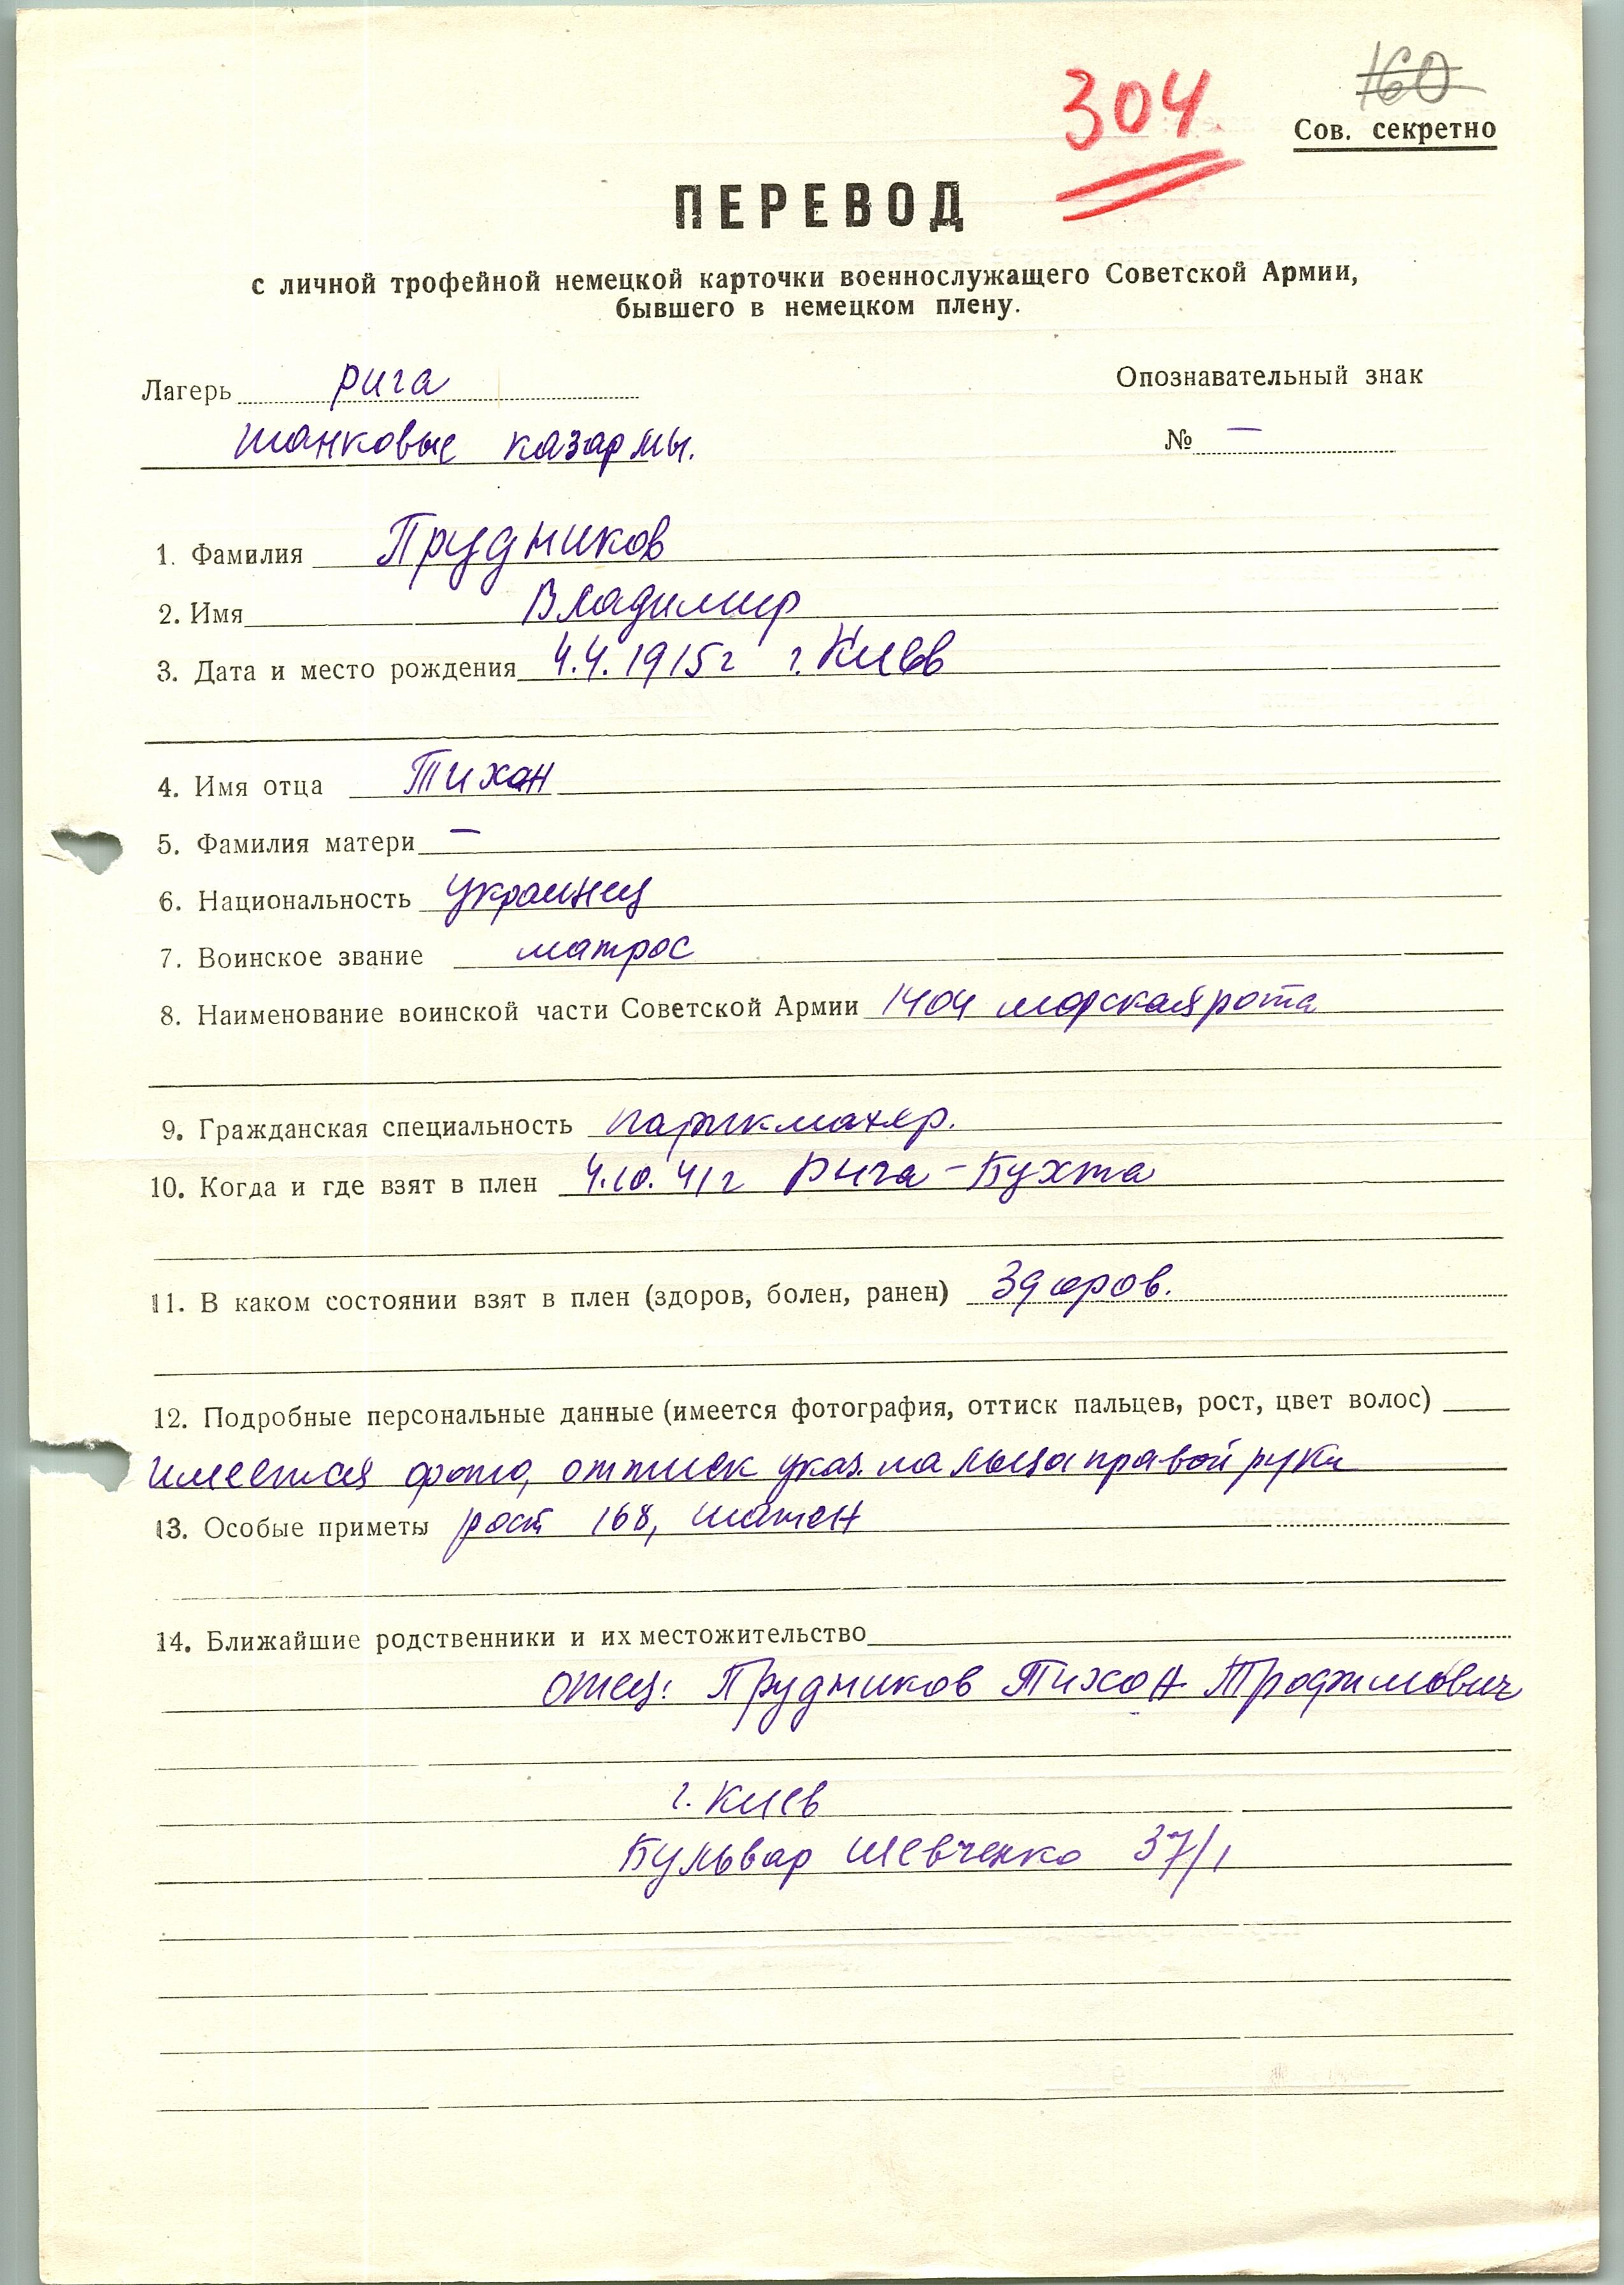 160
304.
Сов. секретно
ПЕРЕВОД
с личной трофейной немецкой карточки военнослужащего Советской Армии,
бывшего в немецком плену.
Лагерь рига
Опознавательный знак
танковые казармы.
№ —
1. Фамилия Прудников
2. Имя Владимир
3. Дата и место рождения 4.4.1915г г. Киев
4. Имя отца Тихон
5. Фамилия матери —
6. Национальность украинец
7. Воинское звание матрос
8. Наименование воинской части Советской Армии 1404 морская рота
9. Гражданская специальность парикмахер.
10. Когда и где взят в плен 4.10.41г Рига – Бухта
11. В каком состоянии взят в плен (здоров, болен, ранен) Здоров.
12. Подробные персональные данные (имеется фотография, оттиск пальцев, рост, цвет волос)
имеется фото, оттиск указ. пальца правой руки
13. Особые приметы рост 168, шатен
14. Ближайшие родственники и их местожительство
отец: Прудников Тихон Трофимович
г. Киев
Бульвар Шевченко 37/1